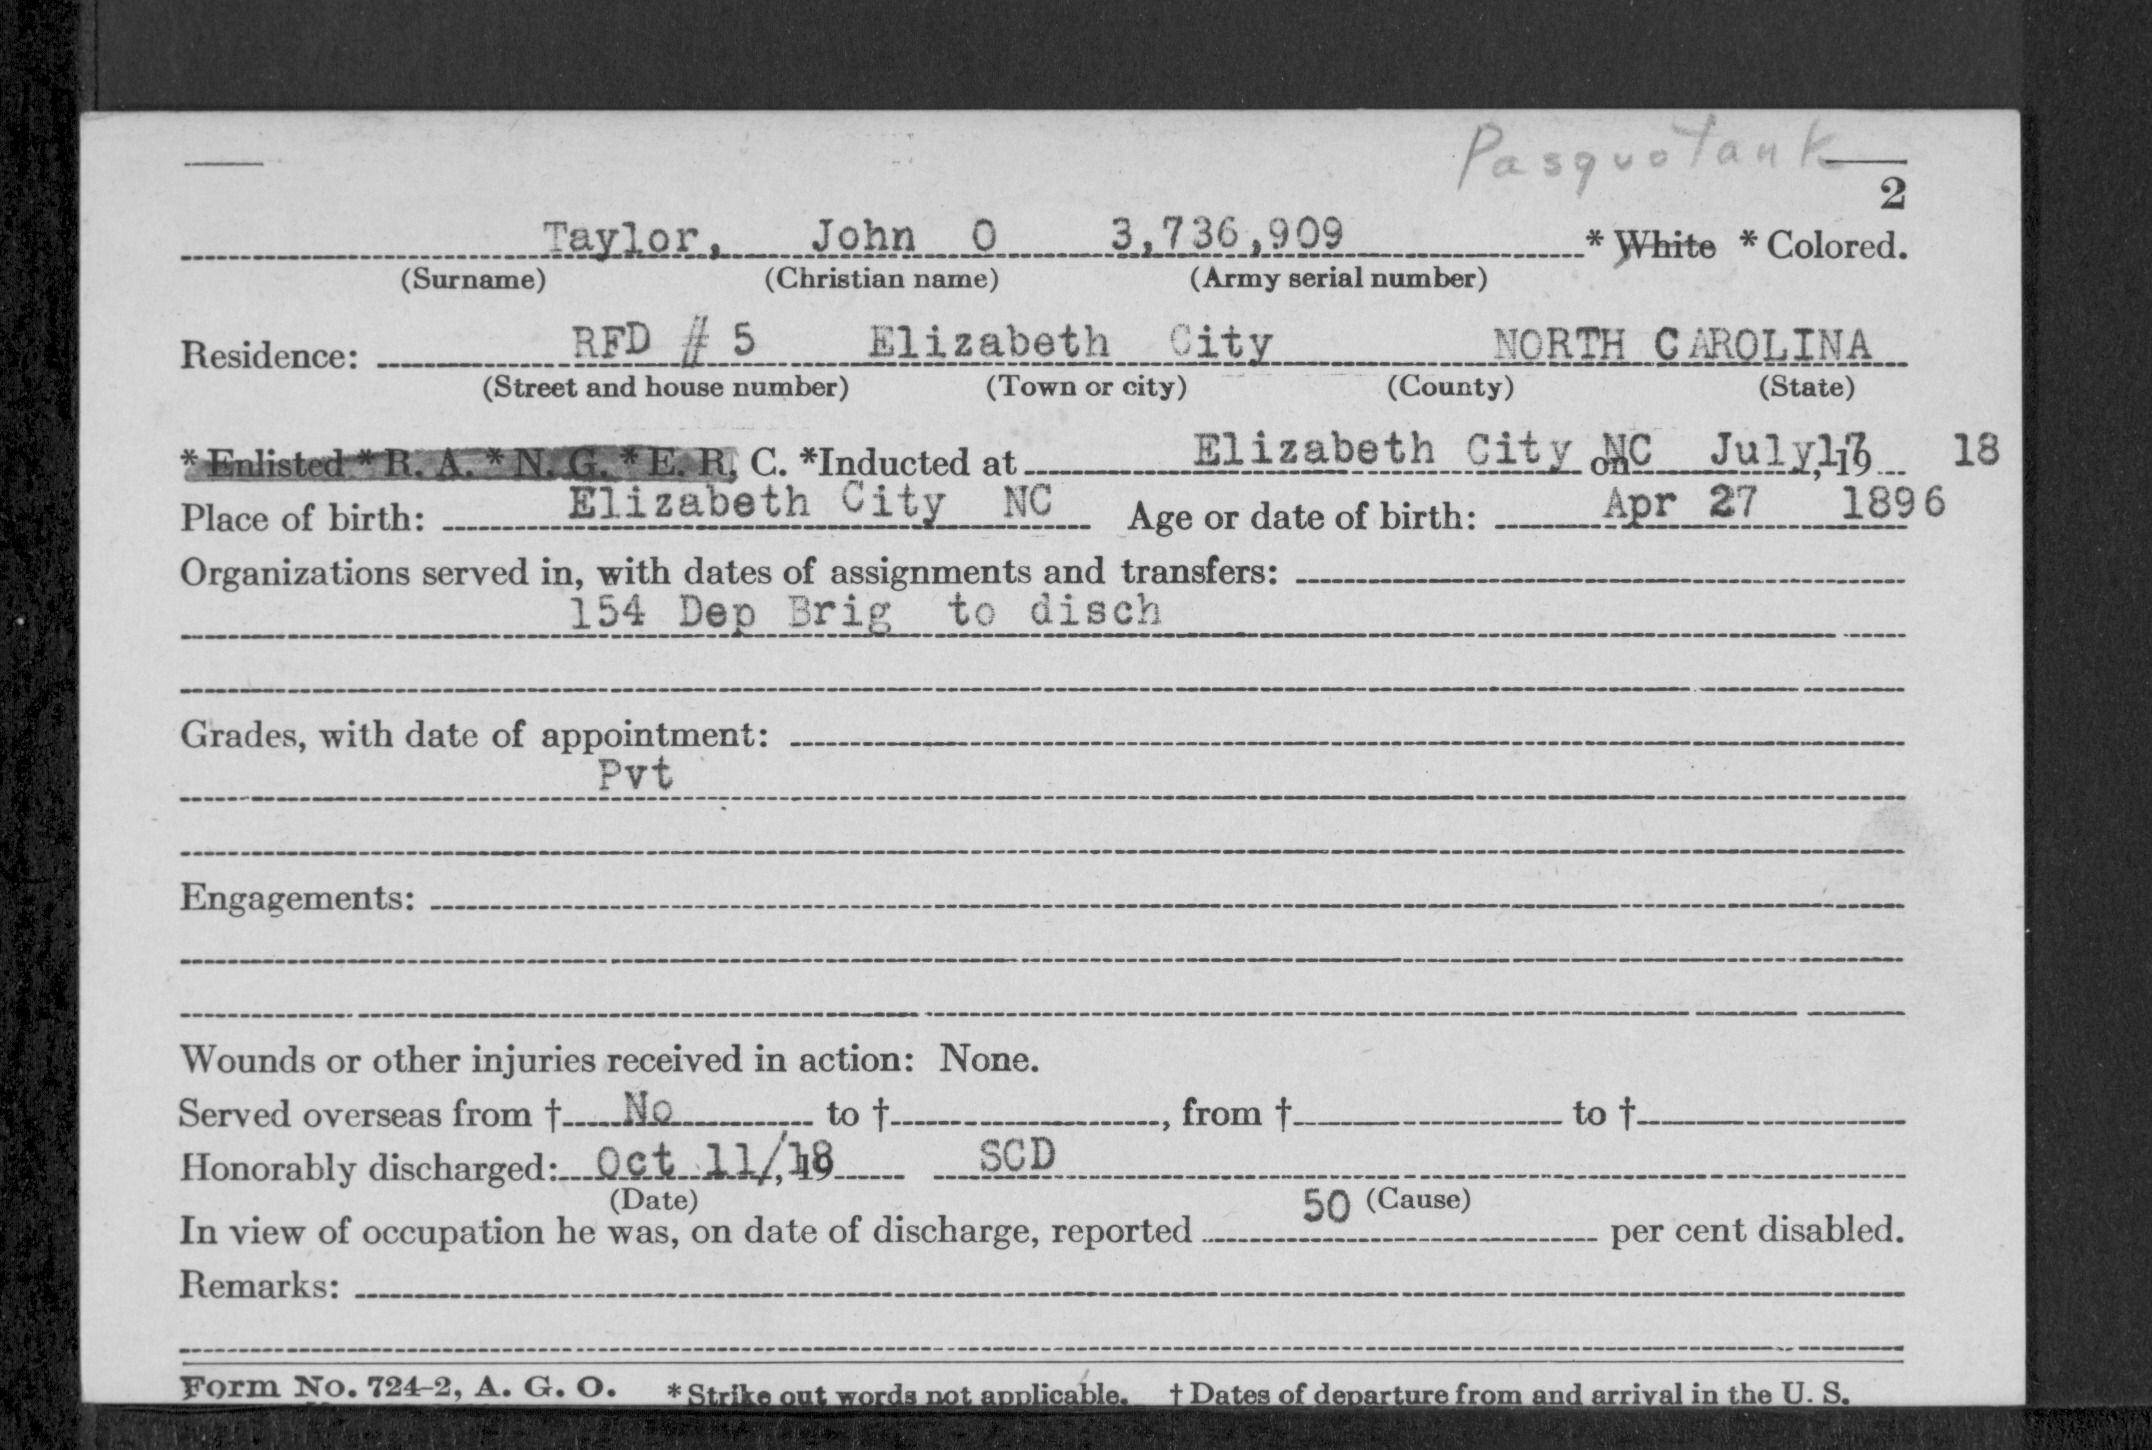 Pasquotank
2
Taylor, John O 3,736,909 * White * Colored.
(Surname) (Christian name) (Army serial number)
Residence: RFD # 5 Elizabeth City NORTH CAROLINA
(Street and house number) (Town or city) (County) (State)
* Enlisted * R. A. * N. G. * E. R. C. *Inducted at Elizabeth City NC on July 17, 19 18
Place of birth: Elizabeth City NC Age or date of birth: Apr 27 1896
Organizations served in, with dates of assignments and transfers:
154 Dep Brig to disch
Grades, with date of appointment:
Pvt
Engagements:
Wounds or other injuries received in action: None.
Served overseas from † No to †, from † to †
Honorably discharged: Oct 11/18, 19 SCD
(Date) 50 (Cause)
In view of occupation he was, on date of discharge, reported per cent disabled.
Remarks:
Form No. 724-2, A. G. O. * Strike out words not applicable. † Dates of departure from and arrival in the U. S.